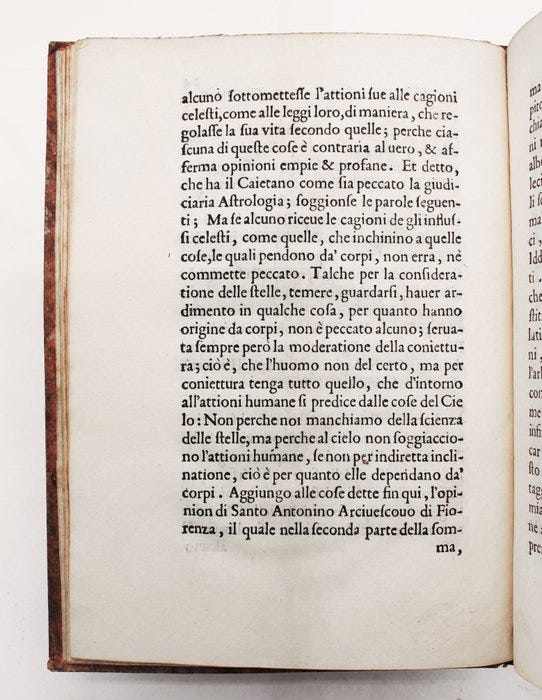 alcuno ſottometteſſe l'attioni ſue alle cagioni
celeſti, come alle leggi loro, di maniera, che re-
golaſſe la ſua vita ſecondo quelle; perche cia-
ſcuna di queſte coſe è contraria al uero, & af-
ferma opinioni empie & profane. Et detto,
che ha il Caietano come ſia peccato la giudi-
ciaria Aſtrologia; ſoggionſe le parole ſeguen-
ti; Ma ſe alcuno riceue le cagioni de gli influſ-
ſi celeſti, come quelle, che inchinino a quelle
coſe, le quali pendono da' corpi, non erra, nè
commette peccato. Talche per la conſidera-
tione delle ſtelle, temere, guardarſi, hauer ar-
dimento in qualche coſa, per quanto hanno
origine da corpi, non è peccato alcuno; ſerua-
ta ſempre però la moderatione della coniettu-
ra; ciò è, che l'huomo non del certo, ma per
coniettura tenga tutto quello, che d'intorno
all'attioni humane ſi predice dalle coſe del Cie
lo: Non perche noi manchiamo della ſcienza
delle ſtelle, ma perche al cielo non ſoggiaccio-
no l'attioni humane, ſe non per indiretta incli-
natione, ciò è per quanto elle dependano da'
corpi. Aggiungo alle coſe dette fin qui, l'opi-
nion di Santo Antonino Arciueſcouo di Fio-
renza, il quale nella ſeconda parte della ſom-
ma,